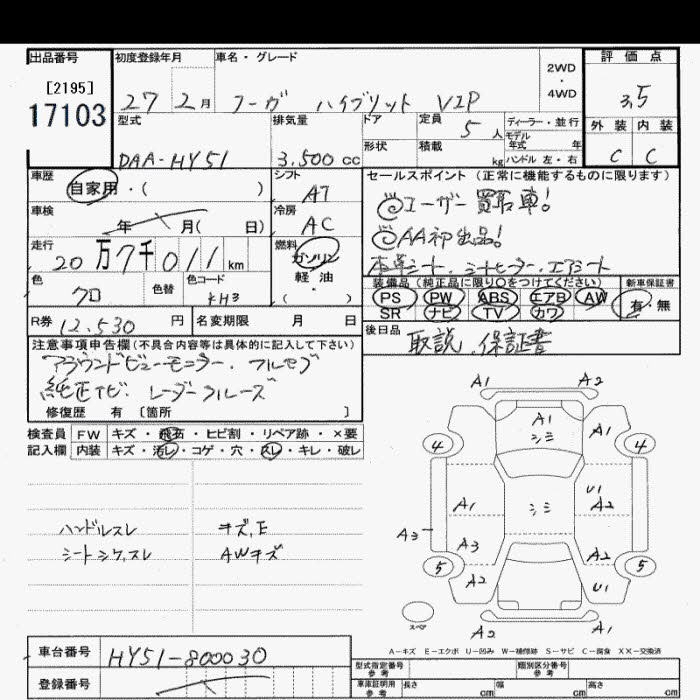 出品番号
[2195]
17103
初度登録年月
27 2月
車名・グレード
フーガ ハイブリット VIP
2WD
・
4WD
評価点
3.5
外装 内装
C C
型式
DAA-HY51
排気量
3.500 cc
ドア
形状
定員
5人
積載
kg
ディーラー・並行
モデル年式 年
ハンドル 左・右
車歴
自家用・( )
シフト
A7
車検
年 月( 日)
冷房
AC
走行
20万7千011km
燃料
ガソリン
軽・油
( )
色
クロ
色替
色コード
KH3
R券 12,530 円
名変期限 月 日
セールスポイント(正常に機能するものに限ります)
◎ユーザー買取車!
◎AA初出品!
本革シート.シートヒーター.エアシート
装備品(純正品に限り○をつけてください)
PS PW ABS エアB AW
SR ナビ TV カワ
新車保証書
有・無
後日品
取説.保証書
注意事項申告欄(不具合内容等は具体的に記入して下さい)
アラウンドビューモニター.フルセグ
純正ナビ.レーダークルーズ
修復歴 有 [箇所 ]
検査員
記入欄
FW キズ・飛石・ヒビ割・リペア跡・×要
内装 キズ・汚レ・コゲ・穴・スレ・キレ・破レ
ハンドルスレ キズ,E
シートシワ,スレ AWキズ
A1 A2
4 A1 シミ A1 4
A1 シミ U1 A2
A3 A3 A2
5 A2 U1 5
スペア
A2 A1
A-キズ E-エクボ U-凹み W-補修跡 S-サビ C-腐食 XX-交換済
車台番号
HY51-800030
登録番号
型式指定番号 参考
類別区分番号 参考
車庫証明用 参考
長さ cm 幅 cm 高さ cm